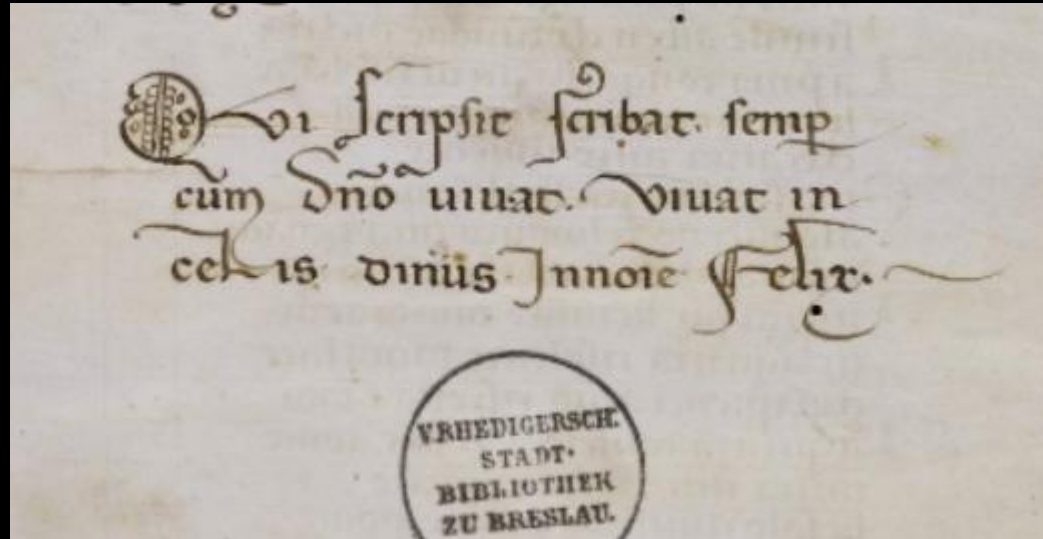 Qvi scripsit scribat. semꝑ
cum̄ dn̄o uiuat. Viuat in
celis dini᷒us In noīe Felix.
V. RHEDIGERSCH.
STADT-
BIBLIOTHEK
ZU BRESLAU.